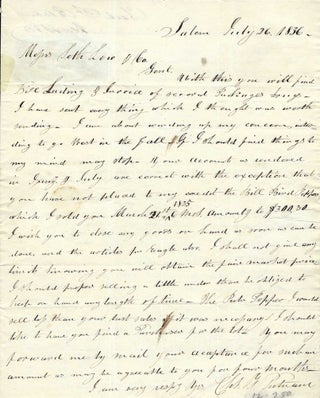 Salem July 26, 1836
Messrs Seth Low & Co
Gent
With this you will find
Bill Lading & Invoice of second Packages drugs
I have sent any thing which I thought was worth
sending. I am about winding up my concern, inten
ding to go West in the fall & if I should find things to
my mind may stop. Your Account as rendered
in & July are correct with the exception that
you have not placed to my credit the Bill Bird Pepper
which I sold you March 21st 1835 Am't to $300.30
I wish you to close any goods on hand as soon as can be
done, and the articles for also. I shall not give any
limit knowing you will obtain the fair market price
I should prefer selling a little under than be obliged to
keep on hand any length of time. The Pepper I would
sell less than your last sales if it was necessary. I should
like to have you find a Purchaser for the lot. You may
forward me by mail your acceptance for such an
amount as may be agreeable to you for four months.
I am very respy Yrs Putnam